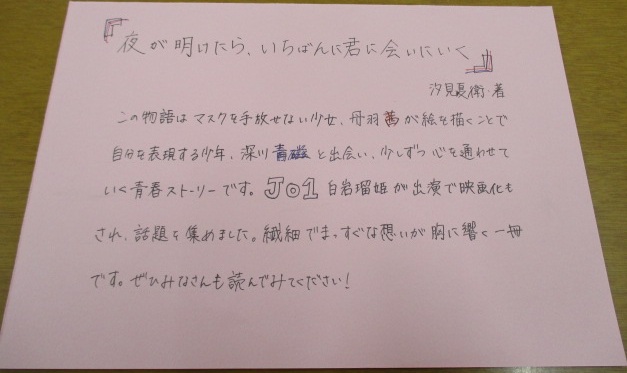 『夜が明けたら、いちばんに君に会いにいく』
汐見夏衛・著
この物語はマスクを手放せない少女、丹羽茜が絵を描くことで
自分を表現する少年、深川青磁と出会い、少しずつ心を通わせて
いく青春ストーリーです。JO1白岩瑠姫が出演で映画化も
され、話題を集めました。繊細でまっすぐな想いが胸に響く一冊
です。ぜひみなさんも読んでみてください！